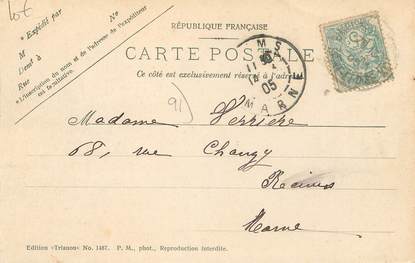 RÉPUBLIQUE FRANÇAISE
CARTE POSTALE
Ce côté est exclusivement réservé à l'adresse
* Expédié par
M
Demt à
Rue
No
*L'inscription du nom et de l'adresse de l'expéditeur
est facultative.
05
MARNE
91
Madame Verrière
68, rue Chanzy
Reims
Marne
Edition «Trianon» No. 1487. P. M., phot., Reproduction interdite.